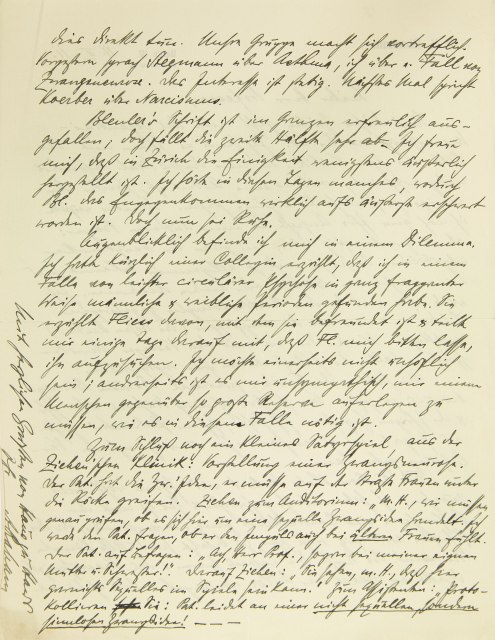 dies direkt tun. Unsre Gruppe macht sich vortrefflich.
Vorgestern sprach Stegmann über Asthma, ich über e. Fall von
Zwangsneurose. Das Interesse ist stetig. Nächstes Mal spricht
Koerber über Narcismus.
Bleulers Schrift ist im Ganzen erfreulich aus-
gefallen; doch fällt die zweite Hälfte sehr ab. Ich freue
mich, daß in Zürich die Einigkeit wenigstens äußerlich
hergestellt ist. Ich hörte in diesen Tagen manches, wodurch
Bl. das Entgegenkommen wirklich aufs äußerste erschwert
worden ist. Doch nun sei Ruhe.
Augenblicklich befinde ich mich in einem Dilemma.
Ich hatte kürzlich einer Collegin erzählt, daß ich in einem
Falle von leichter circulärer Psychose in ganz frappanter
Weise männliche & weibliche Perioden gefunden habe. Sie
erzählte Fliess davon, mit dem sie befreundet ist & teilt
mir einige Tage darauf mit, daß Fl. mich bitten lasse,
ihn aufzusuchen. Ich möchte einerseits nicht unhöflich
sein; andrerseits ist es mir unsympathisch, mir einem
Menschen gegenüber so große Reserve auferlegen zu
müssen, wie es in diesem Falle nötig ist.
Zum Schluß noch ein kleines Satyrspiel aus der
Ziehen'schen Klinik: Vorstellung einer Zwangsneurose.
Der Pat. hat die Zw. Ideen, er müsse auf der Straße Frauen unter
die Röcke greifen. Ziehen zum Auditorium: „M. H., wir müssen
genau prüfen, ob es sich hier um eine sexuelle Zwangsidee handelt. Ich
werde den Pat. fragen, ob er den Impuls auch bei älteren Frauen fühlt.
Der Pat. auf Befragen: „Ach, Herr Prof., sogar bei meiner eignen
Mutter u Schwester!“. Darauf Ziehen: „Sie sehen, m. H., daß hier
garnichts Sexuelles im Spiele sein kann.“ Zum Assistenten: „Proto-
kollieren Sie: Pat. leidet an einer nicht sexuellen, sondern
sinnlosen Zwangsidee! – – –
Mit herzlichen Grüßen von Haus zu Haus
Ihr Abraham